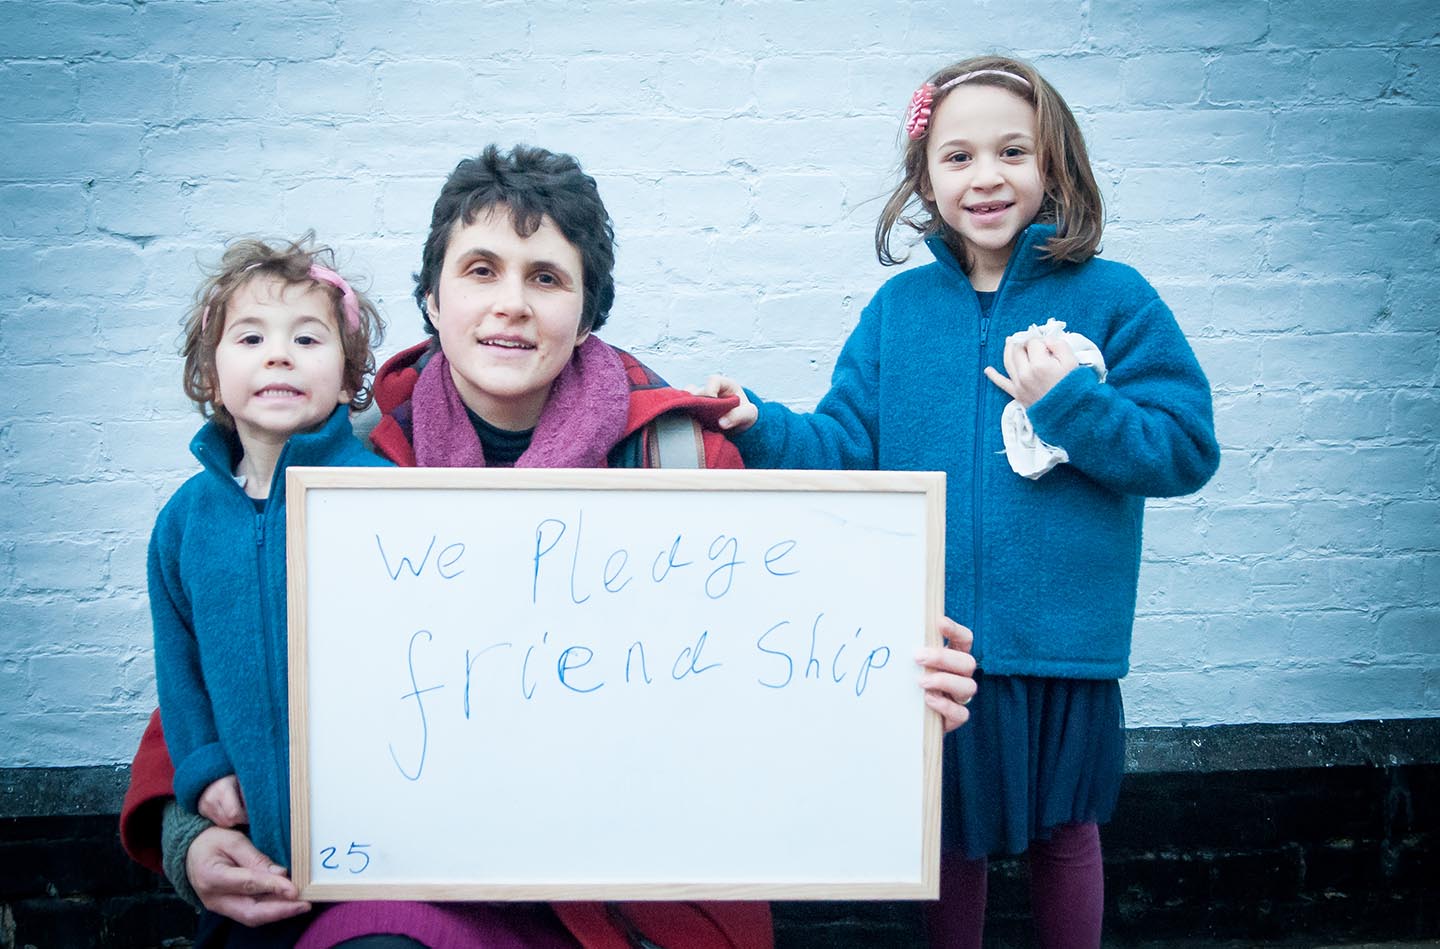 We Pledge
friend Ship
25